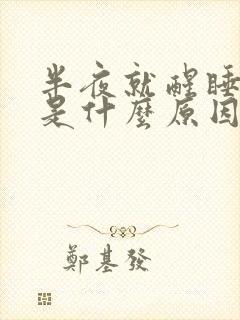 半夜就醒睡
是什麼原因
鄭基發